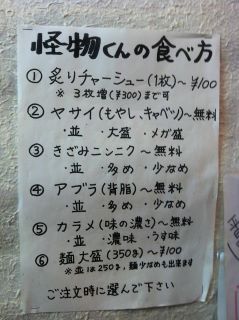 怪物くんの食べ方
① 炙りチャーシュー(1枚)～¥100
※ 3枚増(¥300)まで可
② ヤサイ(もやし、キャベツ)～無料
・並 ・大盛 ・メガ盛
③ きざみニンニク～無料
・並 ・多め ・少なめ
④ アブラ(背脂)～無料
・並 ・多め ・少なめ
⑤ カラメ(味の濃さ)～無料
・並 ・濃味 ・うす味
⑥ 麺大盛(350g)～¥100
※並は250g、麺少なめも出来ます
ご注文時に選んで下さい